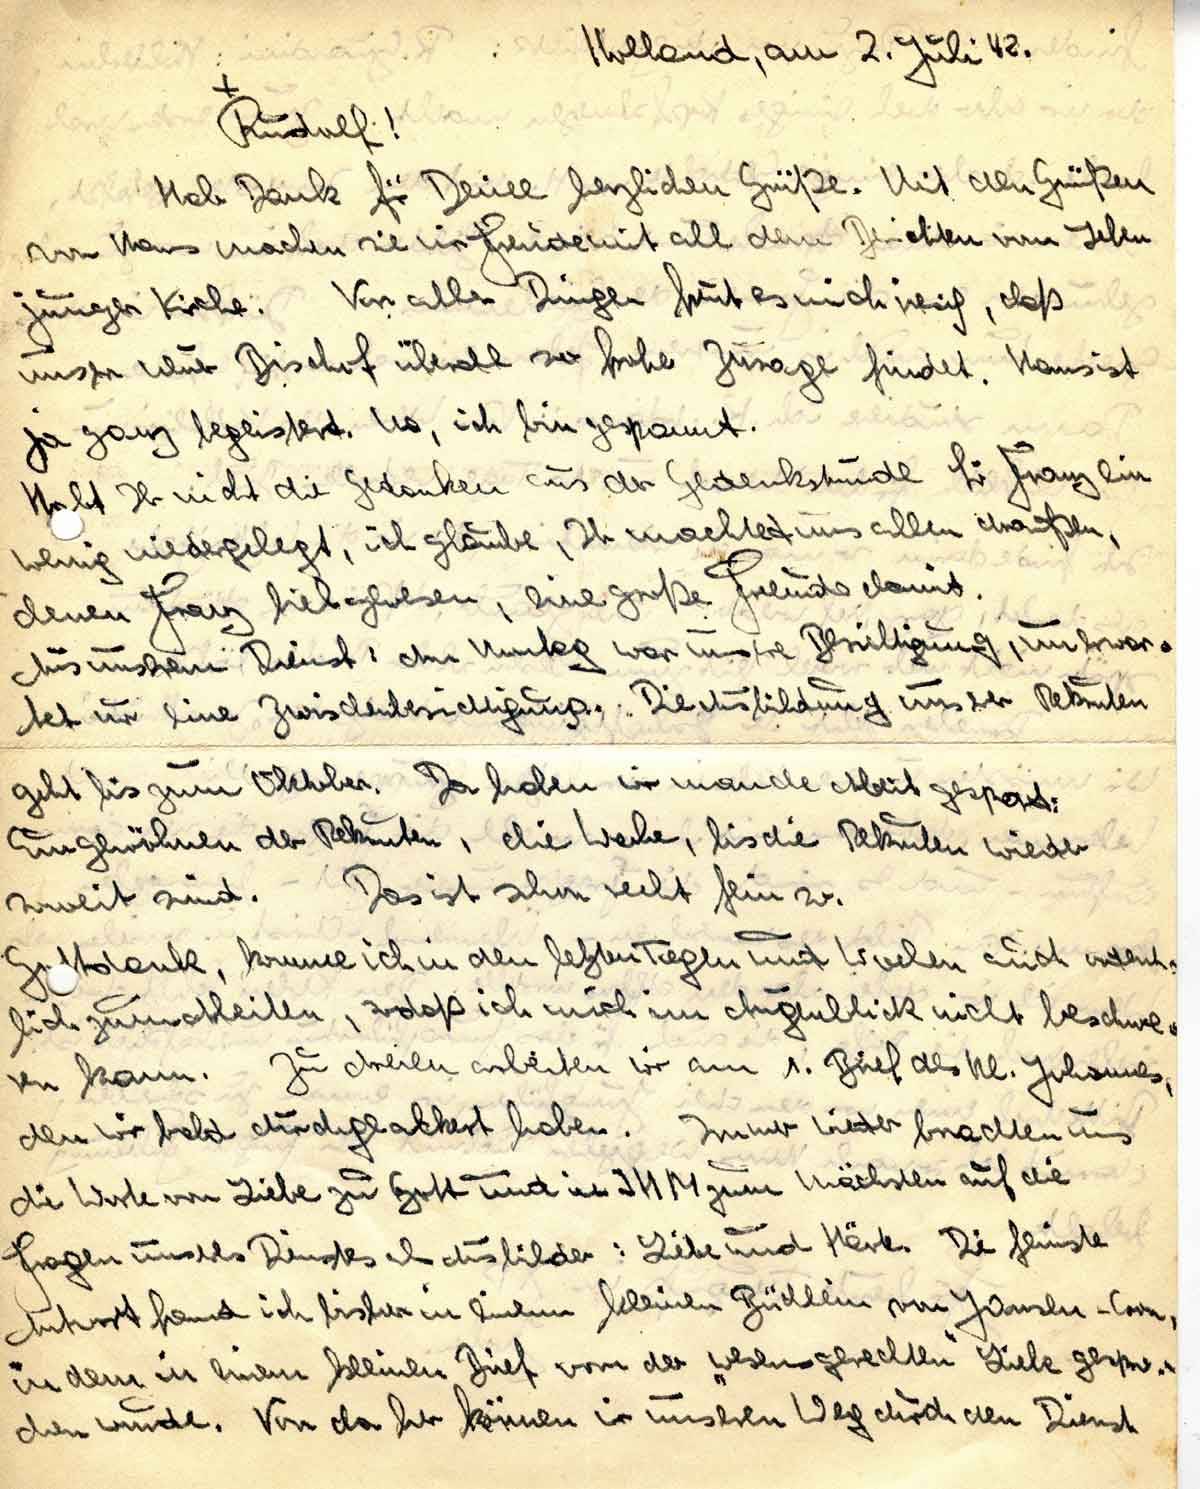 Holland, am 2. Juli 42.
+
Rudolf!
Hab Dank für Deine herzlichen Grüße. Mit den Grüßen
von Hans machen sie mir Freude mit all dem Berichten vom Leben
junger Kirche. Vor allen Dingen freut es mich riesig, daß
unser neuer Bischof überall so frohe Zusage findet. Hans ist
ja ganz begeistert. Na, ich bin gespannt.
Habt Ihr nicht die Gedanken aus der Gedenkstunde für Franz ein
wenig niedergelegt, ich glaube, Ihr machtet uns allen draußen,
denen Franz lieb gewesen, eine große Freude damit.
Aus unserem Dienst: den war unsre Besichtigung, unerwar-
tet nur eine Zwischenbesichtigung. Die Ausbildung unserer Rekruten
geht bis zum Oktober. Da haben wir manche Arbeit gespart:
Eingewöhnen der Rekruten, die Woche, bis die Rekruten wieder
soweit sind. Das ist schon recht fein so.
Gottdank, komme ich in den letzten Tagen und Wochen auch ordent-
lich zum Arbeiten, sodaß ich mich im Augenblick nicht beschwe-
ren kann. Zu dreien arbeiten wir am 1. Brief des Hl. Johannes,
den wir bald durchgeackert haben. Immer wieder brachten uns
die Worte von Liebe zu Gott und in IHM zum Nächsten auf die
Fragen unseres Dienstes als Ausbilder: Liebe und Härte. Die feinste
Antwort fand ich bisher in einem kleinen Büchlein von Jansen-Cron,
in dem in einem kleinen Brief von der "wesensgerechten" Liebe gespro-
chen wurde. Von da her können wir unseren Weg durch den Dienst